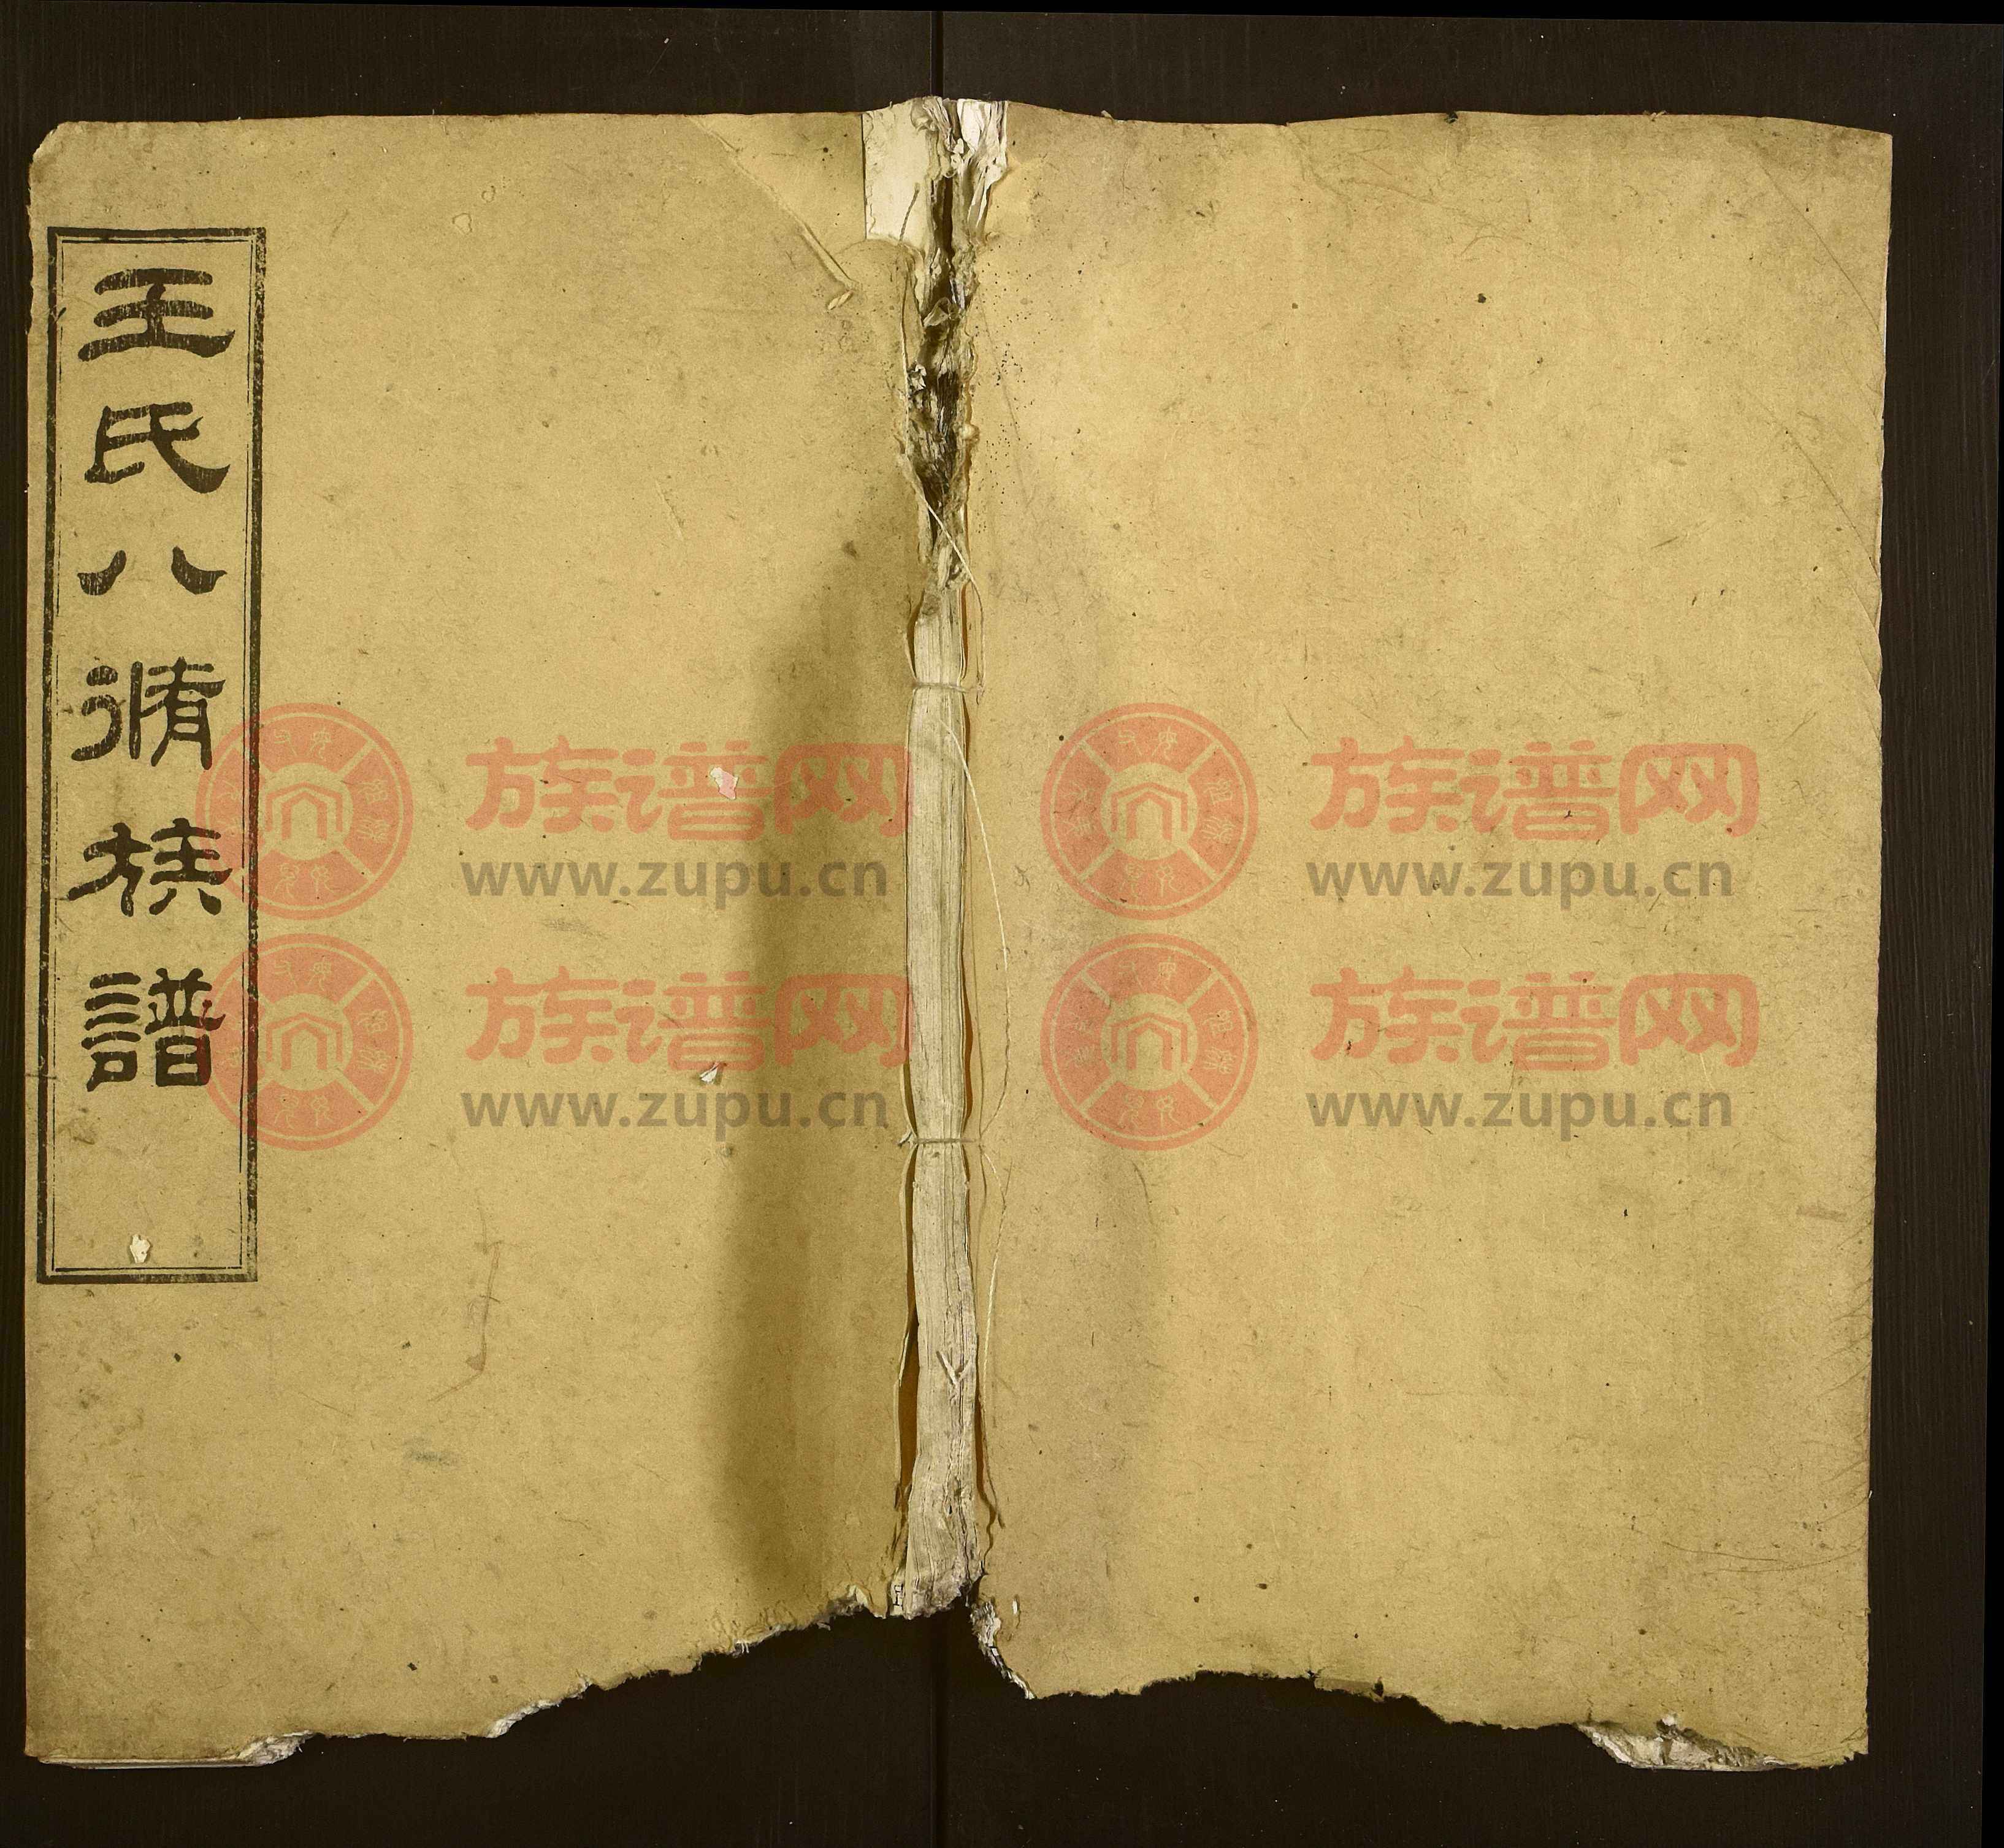 王氏八脩族譜
族谱网
www.zupu.cn
族谱网
www.zupu.cn
族谱网
www.zupu.cn
族谱网
www.zupu.cn